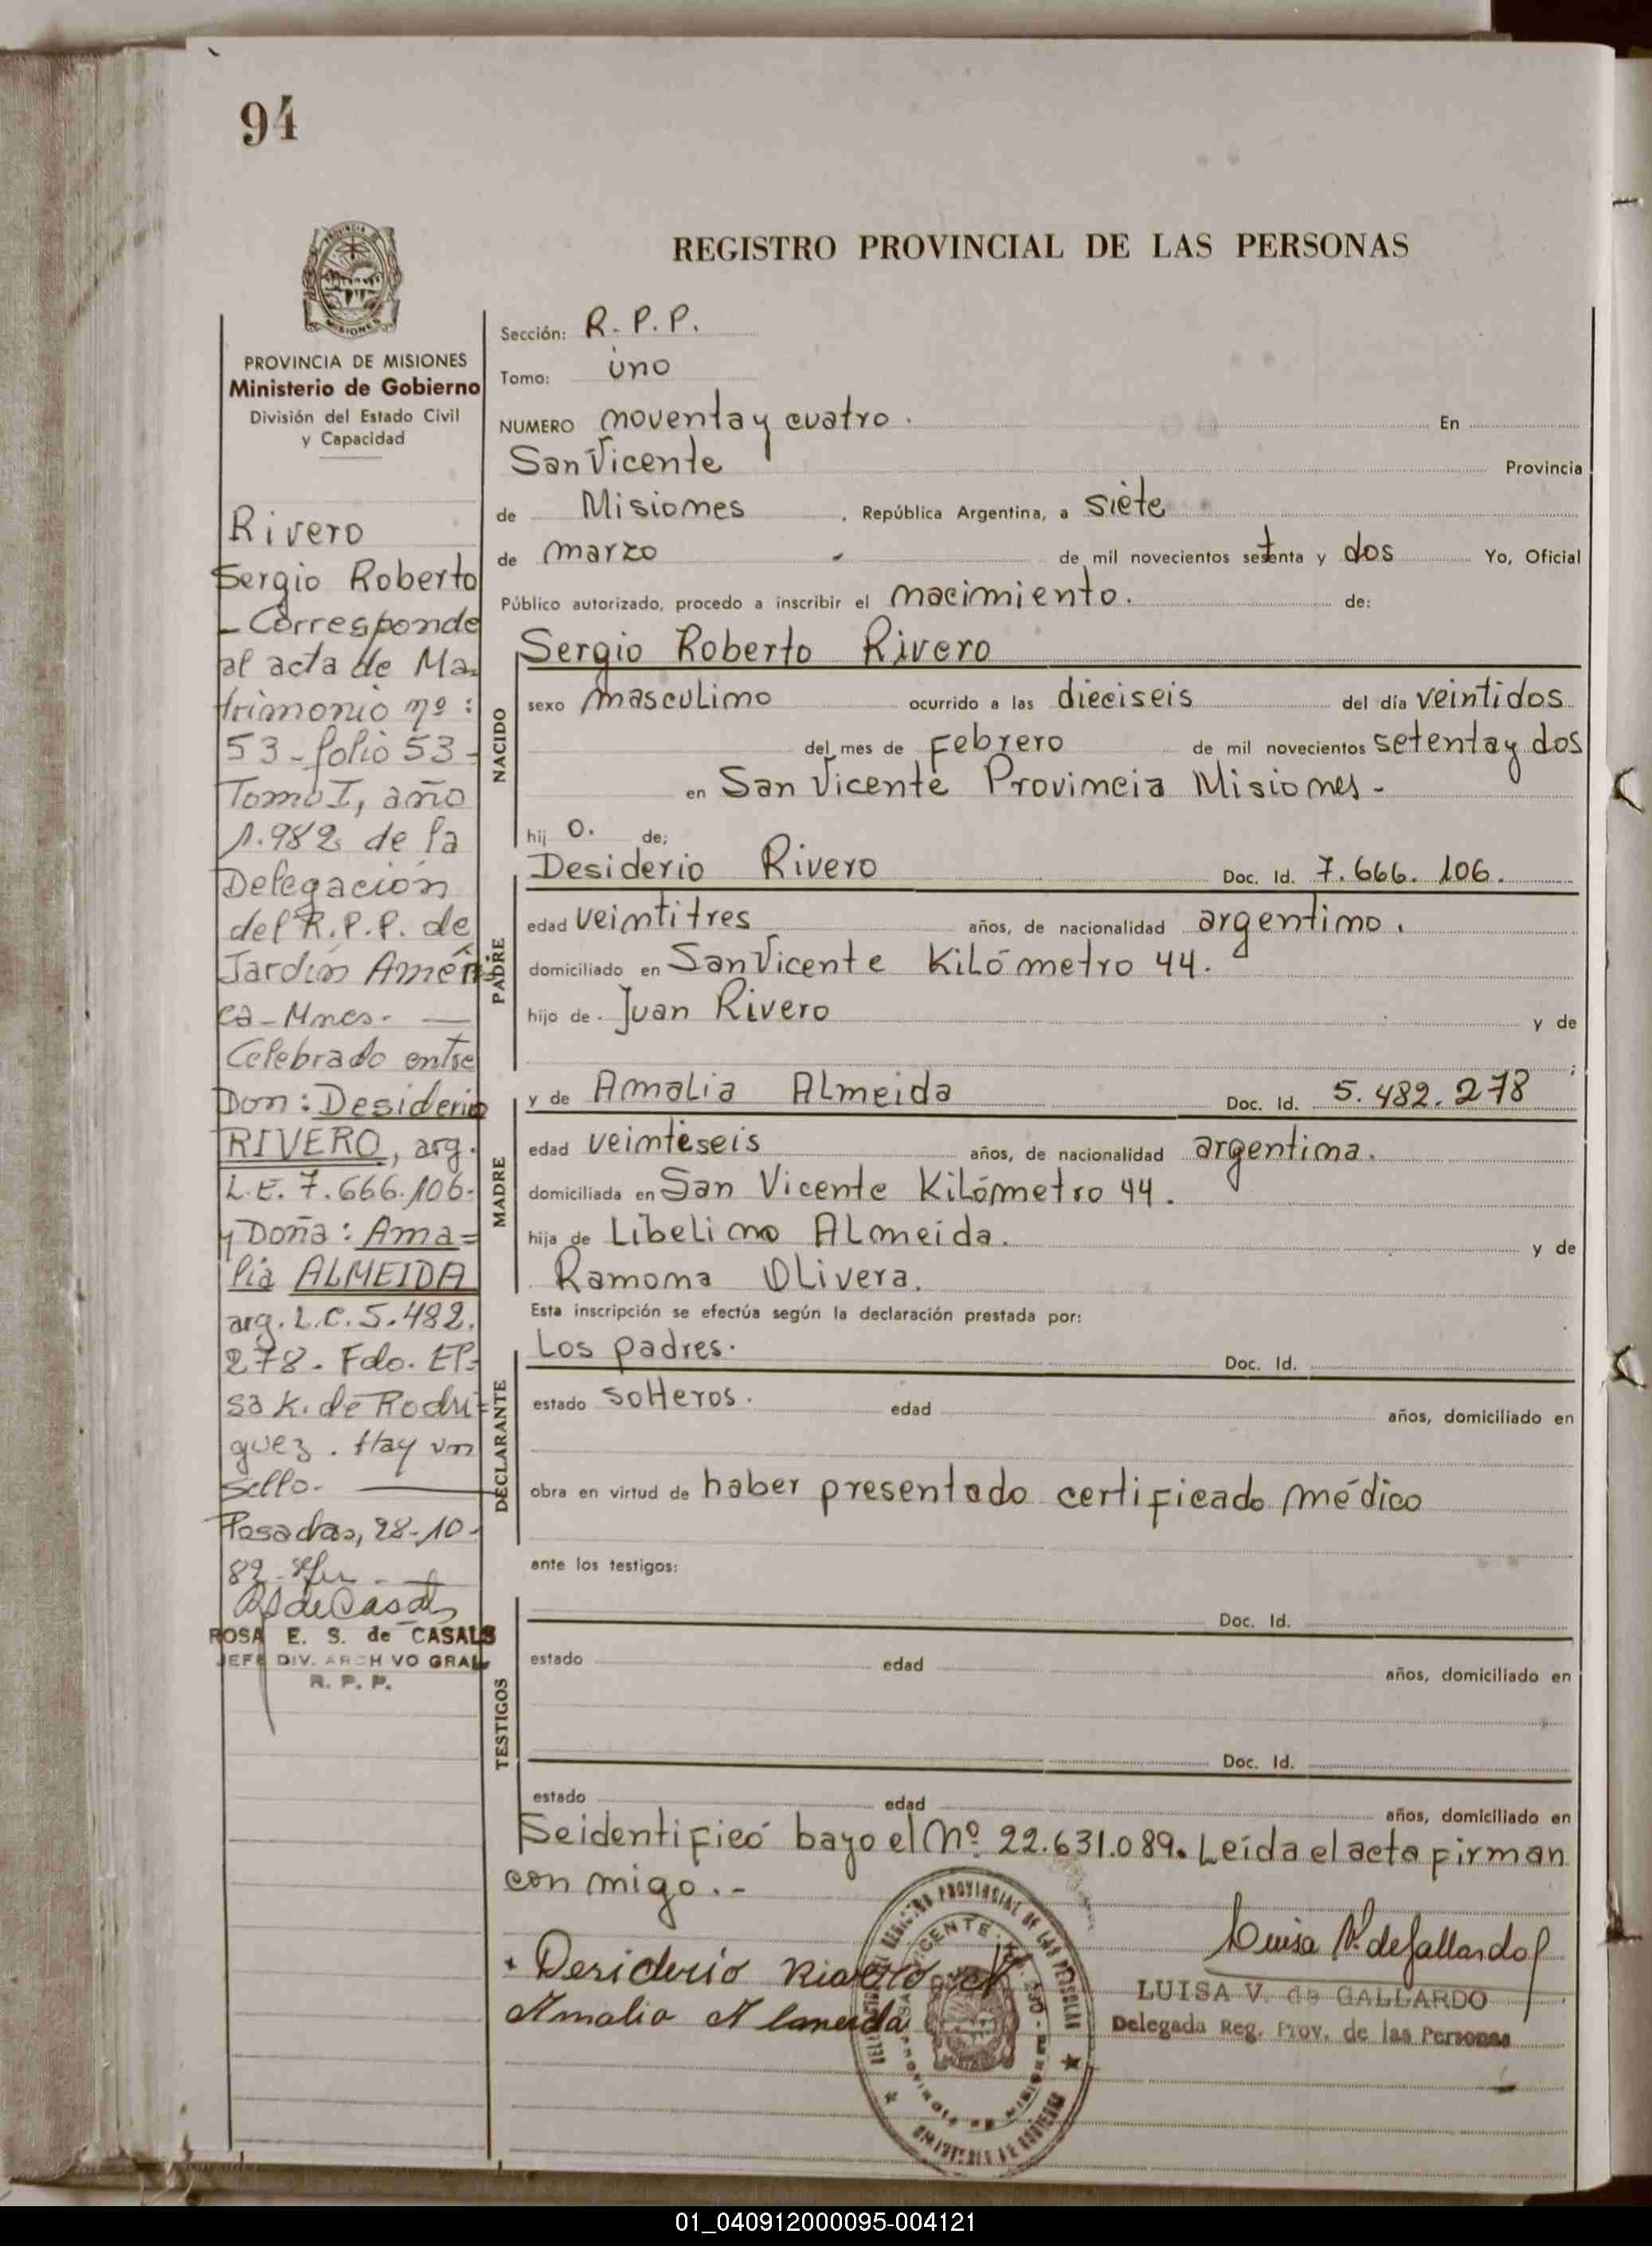 94
PROVINCIA DE MISIONES
Ministerio de Gobierno
División del Estado Civil
y Capacidad
Rivero
Sergio Roberto
- Corresponde
al acta de Ma=
trimonio nº:
53 - folio 53 -
Tomo I, año
1.982 de la
Delegación
del R.P.P. de
Jardín Améri
ca - Mnes. —
Celebrado entre
Don: Desiderio
RIVERO, arg.
L.E. 7.666.106-
y Doña: Ama=
lia ALMEIDA
arg. L.C. 5.482.
278. Fdo. El=
sa K. de Rodri=
guez. Hay un
sello. —
Posadas, 28-10-
82-
ROSA E. S. de CASALS
JEFE DIV. ARCHIVO GRAL
R. P. P.
REGISTRO PROVINCIAL DE LAS PERSONAS
Sección: R. P. P.
Tomo: uno
NUMERO noventa y cuatro. En
San Vicente Provincia
de Misiones, República Argentina, a siete
de marzo - de mil novecientos setenta y dos Yo, Oficial
Público autorizado, procedo a inscribir el nacimiento. de:
NACIDO
Sergio Roberto Rivero
sexo masculino ocurrido a las dieciseis del día veintidos
del mes de Febrero de mil novecientos setenta y dos
en San Vicente Provincia Misiones -
hij o. de;
PADRE
Desiderio Rivero Doc. Id. 7.666.106.
edad veintitres años, de nacionalidad argentino.
domiciliado en San Vicente Kilómetro 44.
hijo de Juan Rivero y de
;
MADRE
y de Amalia Almeida Doc. Id. 5.482.278
edad veintéseis años, de nacionalidad argentina.
domiciliada en San Vicente Kilómetro 44.
hija de Libelino Almeida. y de
Ramona Olivera.
Esta inscripción se efectúa según la declaración prestada por:
DECLARANTE
Los padres. Doc. Id.
estado solteros. edad años, domiciliado en
obra en virtud de haber presentado certificado médico
ante los testigos:
TESTIGOS
Doc. Id.
estado edad años, domiciliado en
Doc. Id.
estado edad años, domiciliado en
Se identificó bayo el Nº 22.631.089. Leída el acta firman
con migo. -
Desiderio
Amalia
Luisa V. de Gallardo
LUISA V. de GALLARDO
Delegada Reg. Prov. de las Personas
REGISTRO PROVINCIAL DE LAS PERSONAS
MINISTERIO DE GOBIERNO
01_040912000095-004121